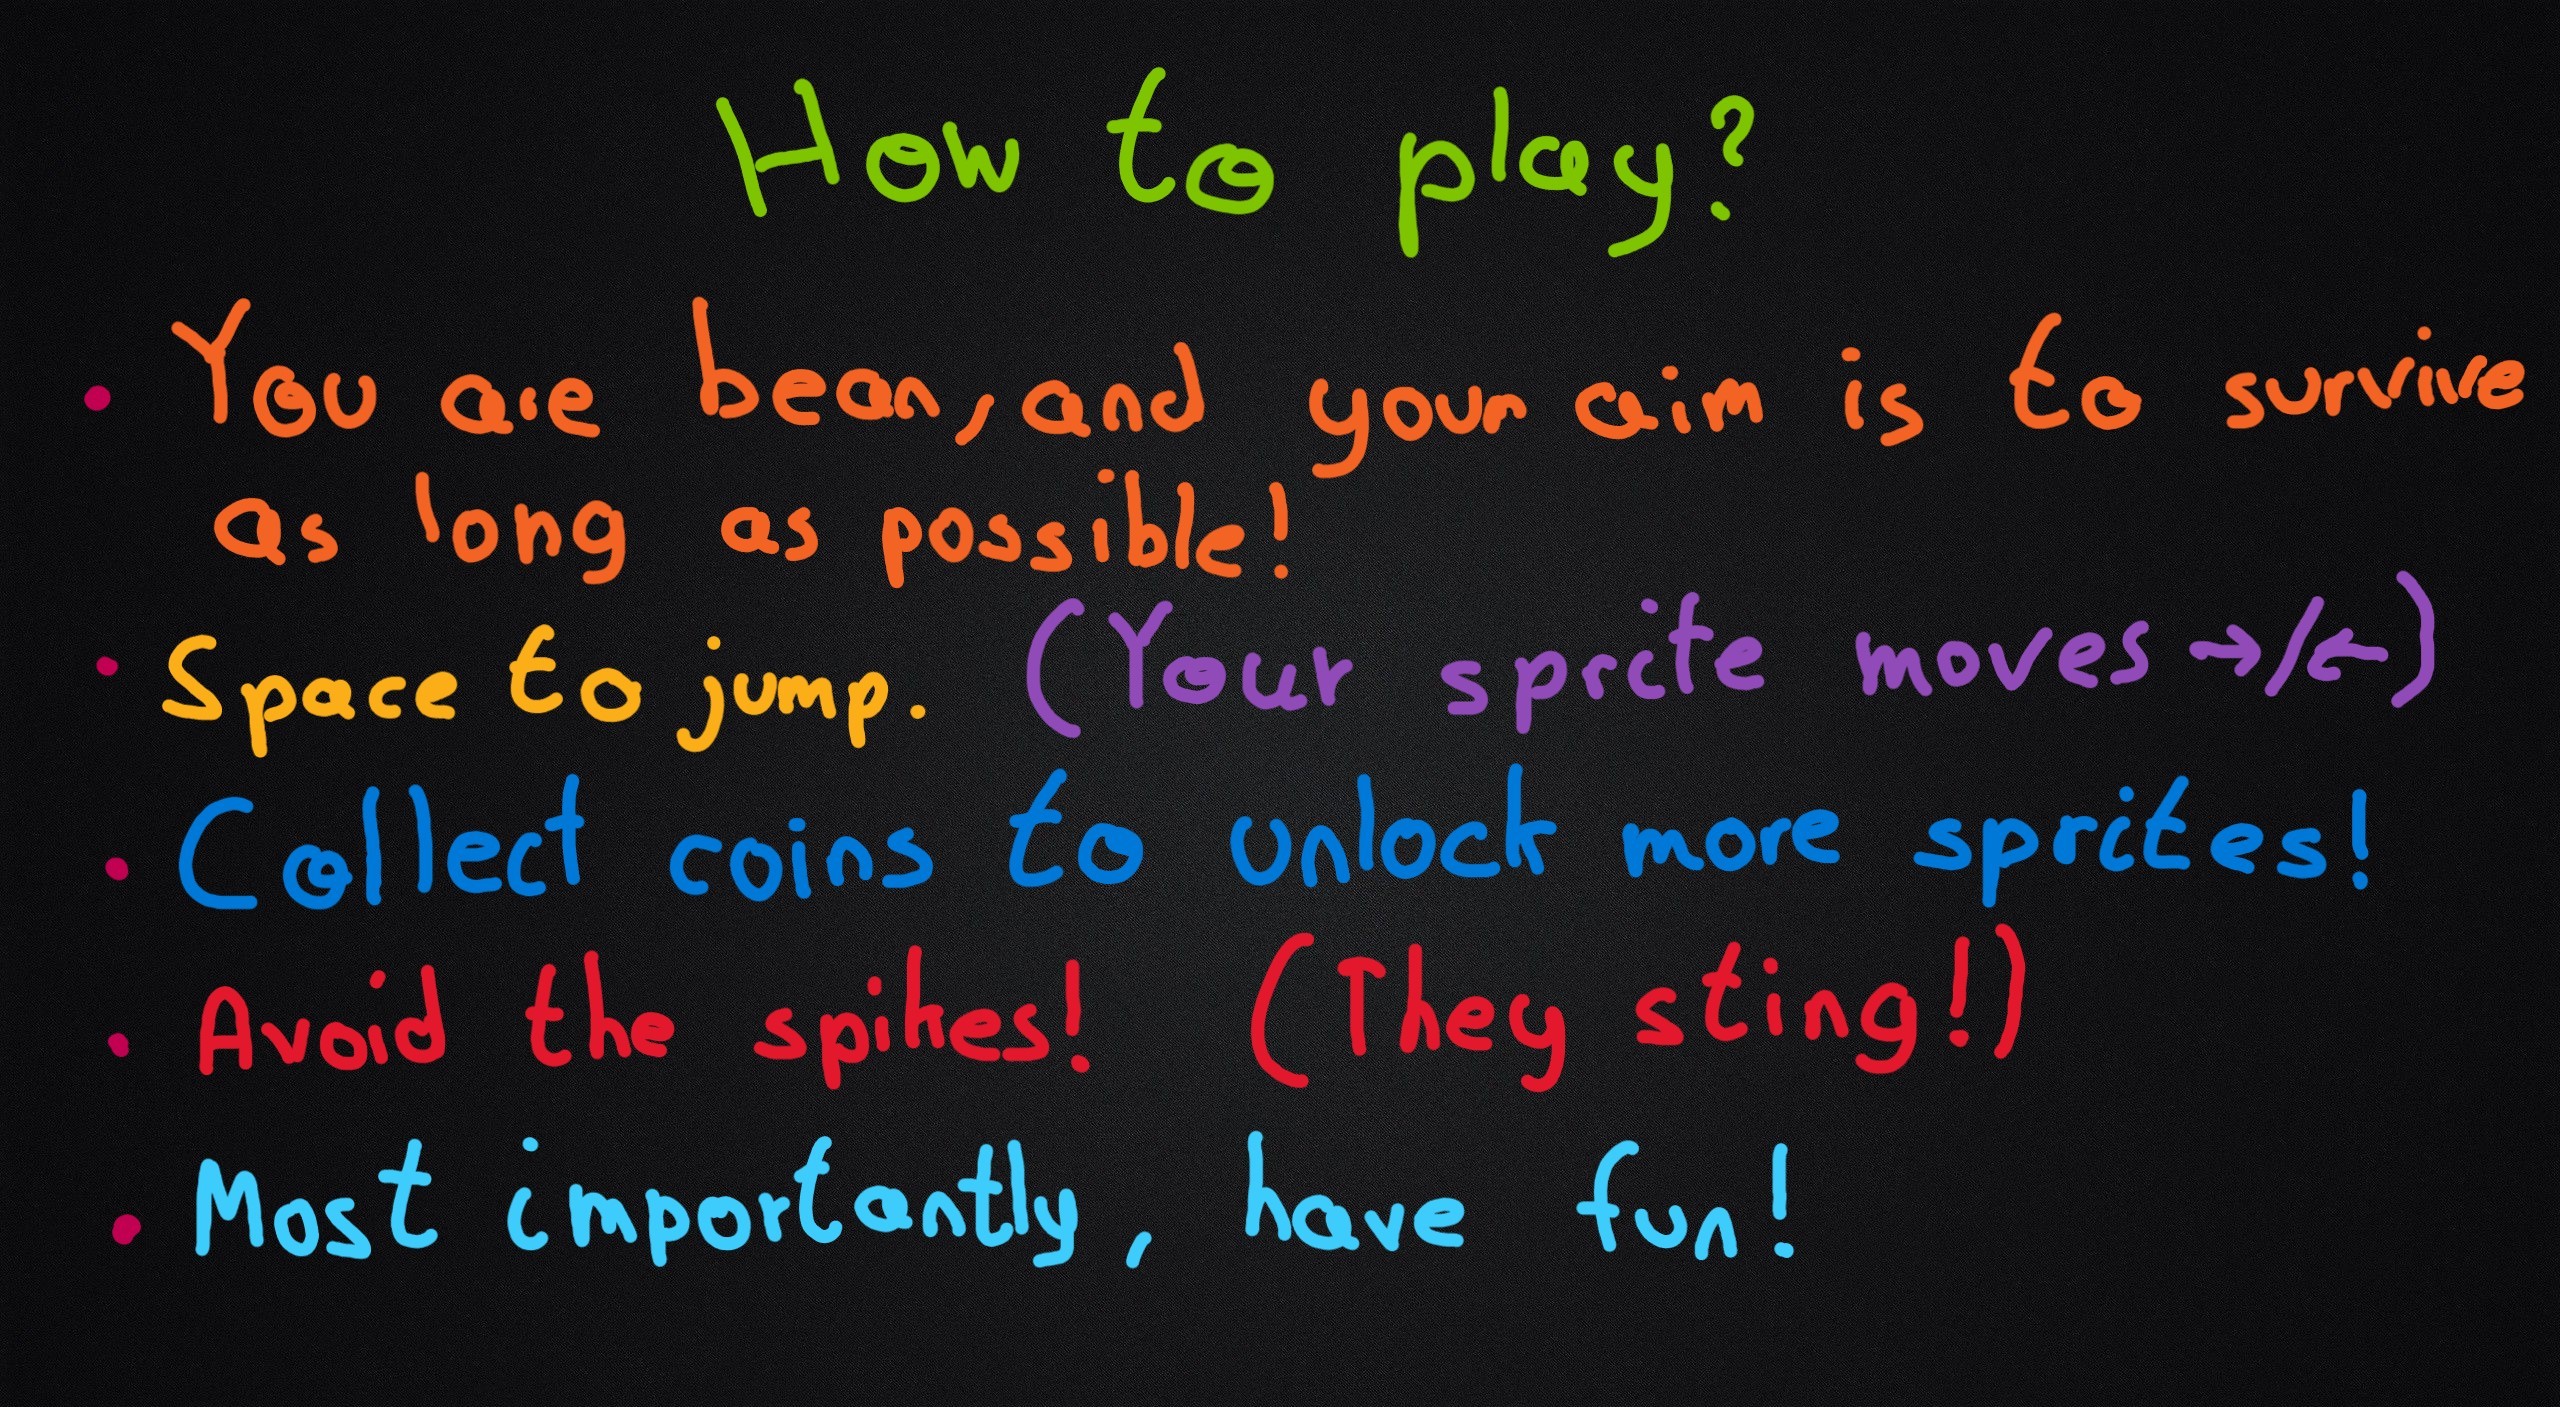 How to play?
• You are bean, and your aim is to survive
as long as possible!
• Space to jump. (Your sprite moves →/←)
• Collect coins to unlock more sprites!
• Avoid the spikes! (They sting!)
• Most importantly, have fun!